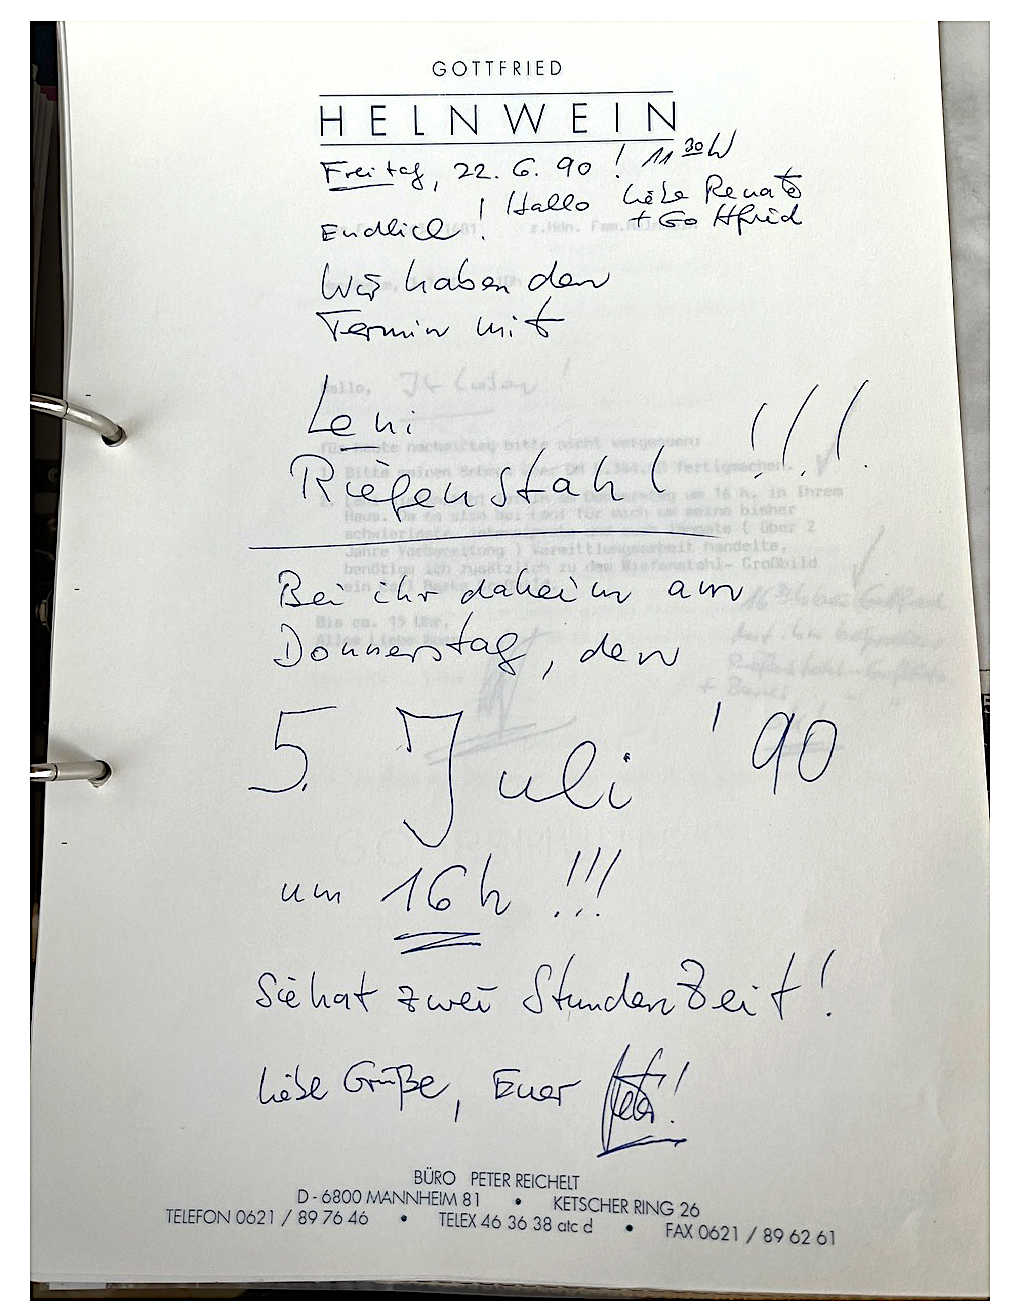 GOTTFRIED
HELNWEIN
Freitag, 22. 6. 90 ! 11 30 h
Endlich ! Hallo liebe Renate
+ Gottfried
Wir haben den
Termin mit
Leni !!!
Riefenstahl
Bei ihr daheim am
Donnerstag, den
5. Juli '90
um 16 h !!!
Sie hat zwei Stunden Zeit !
Liebe Grüße, Euer Peter !
BÜRO PETER REICHELT
D - 6800 MANNHEIM 81 • KETSCHER RING 26
TELEFON 0621 / 89 76 46 • TELEX 46 36 38 atc d • FAX 0621 / 89 62 61